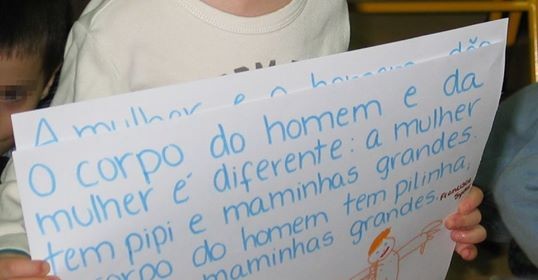 A mulher e o homem dão
O corpo do homem e da
mulher é diferente: a mulher
tem pipi e maminhas grandes.
corpo do homem tem pilinha,
maminhas grandes. Francisca